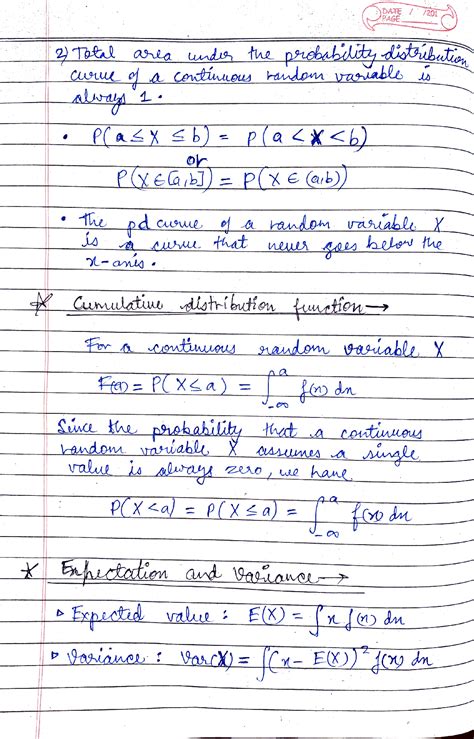 DATE / /201
PAGE
2) Total area under the probability distribution
curve of a continuous random variable is
always 1.
• P(a≤X≤b) = P(a<X<b)
or
P(X∈[a,b]) = P(X∈(a,b))
• The pd curve of a random variable X
is a curve that never goes below the
x-axis.
* Cumulative distribution function→
For a continuous random variable X
F(a) = P(X≤a) = ∫_{-∞}^{a} f(x) dx
Since the probability that a continuous
random variable X assumes a single
value is always zero, we have
P(X<a) = P(X≤a) = ∫_{-∞}^{a} f(x) dx
* Expectation and Variance→
▷ Expected value : E(X) = ∫x f(x) dx
▷ Variance : Var(X) = ∫(x - E(X))² f(x) dx